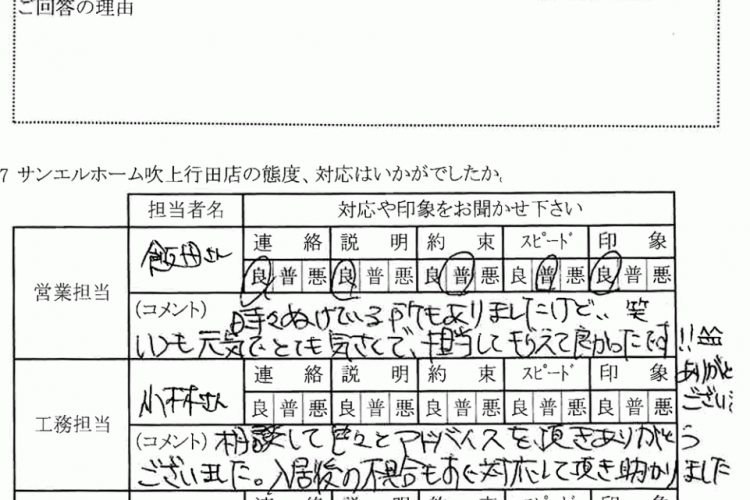 ご回答の理由
7 サンエルホーム吹上行田店の態度、対応はいかがでしたか。
担当者名 対応や印象をお聞かせ下さい
営業担当 飯田さん 連絡 説明 約束 スピード 印象
良 普 悪 良 普 悪 良 普 悪 良 普 悪 良 普 悪
(コメント) 時々ぬけている所もありましたけど、、笑
いつも元気でとても気さくで、担当してもらえて良かったです!!
ありがと
ござい
工務担当 小林さん 連絡 説明 約束 スピード 印象
良 普 悪 良 普 悪 良 普 悪 良 普 悪 良 普 悪
(コメント) 相談して色々とアドバイスを頂きありがとう
ございました。入居後の不具合もすぐ対応して頂き助かりました